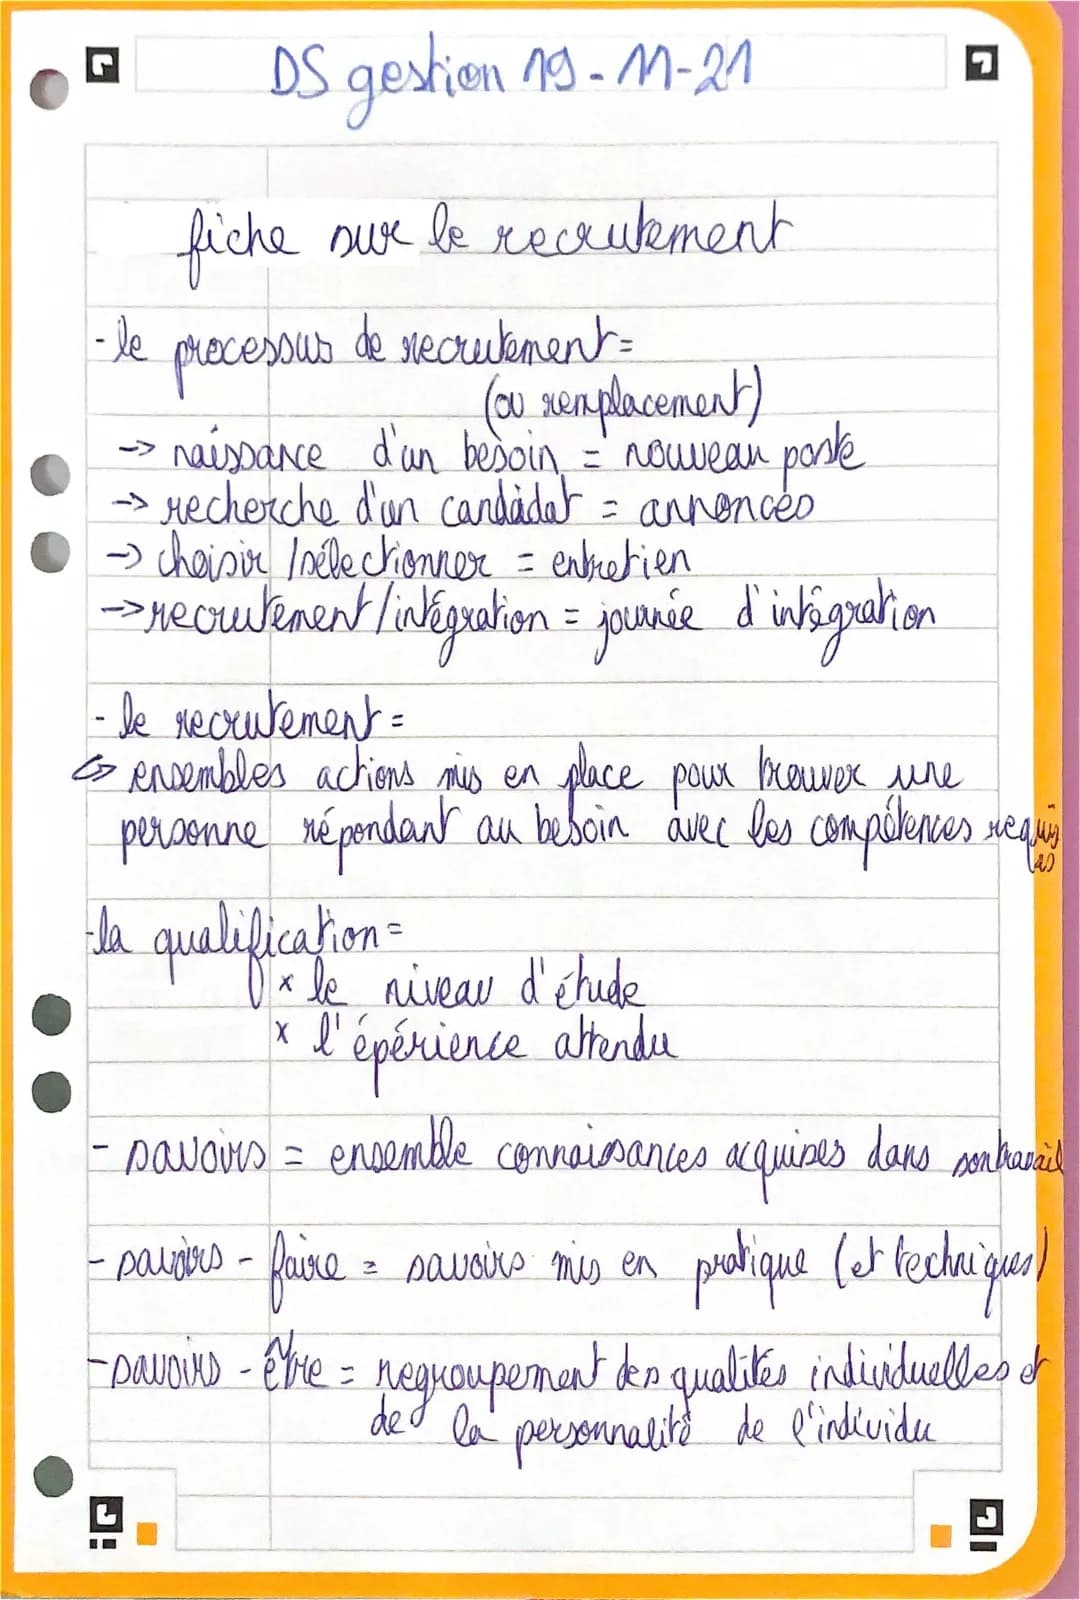 DS gestion 19-11-21
fiche sur le recrutement
- le processus de recrutement =
(ou remplacement)
-> naissance d'un besoin = nouveau poste
-> recherche d'un candidat = annonces
-> choisir / sélectionner = entretien
-> recrutement / intégration = journée d'intégration
- le recrutement =
↳ ensembles actions mis en place pour trouver une
personne répondant au besoin avec les compétences requis
es
- la qualification =
x le niveau d'étude
x l'épérience attendu
- savoirs = ensemble connaissances acquises dans son travail
- savoirs - faire = savoirs mis en pratique (et techniques)
- savoirs - être = regroupement des qualités individuelles et
de la personnalité de l'individu